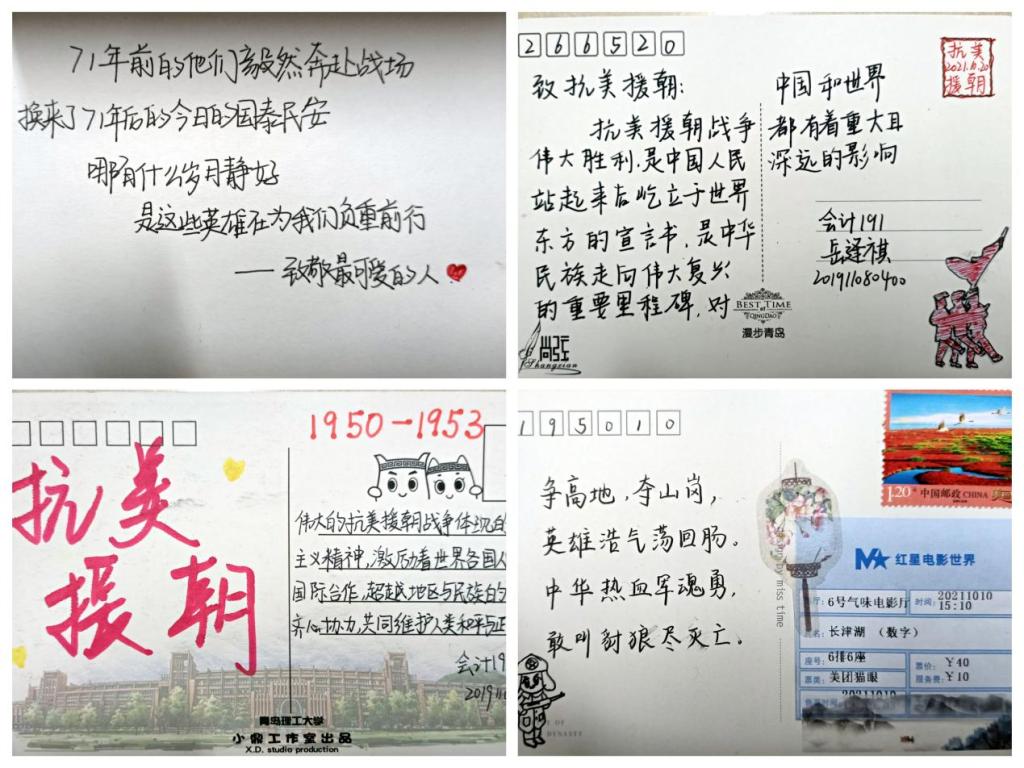 71年前的他们毅然奔赴战场
换来了71年后的今日的国泰民安
哪有什么岁月静好
是这些英雄在为我们负重前行
——致敬最可爱的人
266520
抗美
2021.10.20
援朝
致抗美援朝:
抗美援朝战争
伟大胜利,是中国人民
站起来后屹立于世界
东方的宣言书,是中华
民族走向伟大复兴
的重要里程碑,对
中国和世界
都有着重大且
深远的影响
会计191
岳逢祺
201911080400
BEST TIME
QINGDAO
漫步青岛
尚弦
Shangxian
1950-1953
抗美
援朝
伟大的抗美援朝战争体现
主义精神,激励着世界各国人
国际合作,超越地区与民族的
齐心协力,共同维护人类和平与正
会计19
201911
青岛理工大学
小鼎工作室出品
X.D. studio production
195010
争高地,夺山岗,
英雄浩气荡回肠。
中华热血军魂勇,
敢叫豺狼尽灭亡。
by miss time
1.20 中国邮政 CHINA
红星电影世界
厅: 6号气味电影厅 时间: 20211010 15:10
片名: 长津湖 (数字)
座号: 6排6座 票价: ¥40
票类: 美团猫眼 服务费: ¥10
20211010
DYNASTY